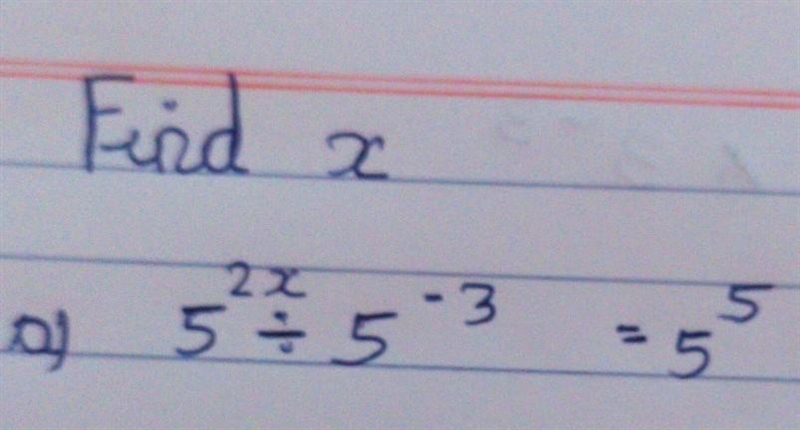 Find x
a) 5^{2x} ÷ 5^{-3} = 5^5